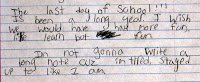 The last day of School!!!
Is been a long year I wish
we would have had more fun.
learn but fun
Im not gonna write a
long note cuz im tired. Stayed
up to like 2 am